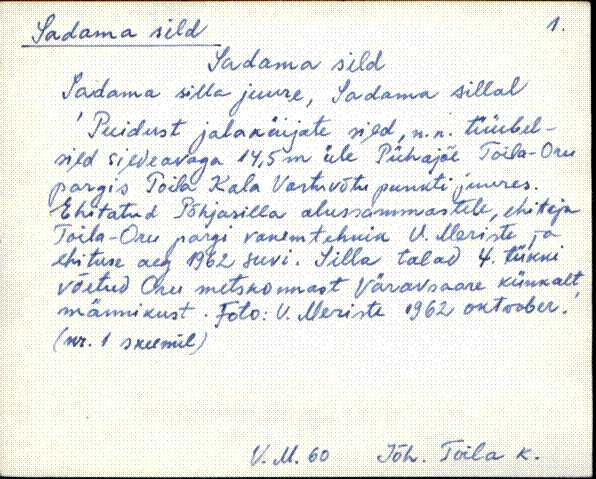 Sadama sild 1.
Sadama sild
Sadama silla juure, Sadama sillal
Puidust jalakäijate sild, n.n. tüübel-
sild sildeavaga 14,5 m üle Pühajõe Toila-Oru
pargis Toila Kala Vastuvõtu punkti juures.
Ehitatud Põhjasilla alussammastele, ehitaja
Toila-Oru pargi vanemtehnik V. Meriste ja
ehituse aeg 1962 suvi. Silla talad 4. tükki
võetud Oru metskonnast Väravsaare künkalt,
männikust. Foto: V. Meriste 1962 oktoober.
(nr. 1 skeemil)
V. M. 60 Jõh. Toila k.